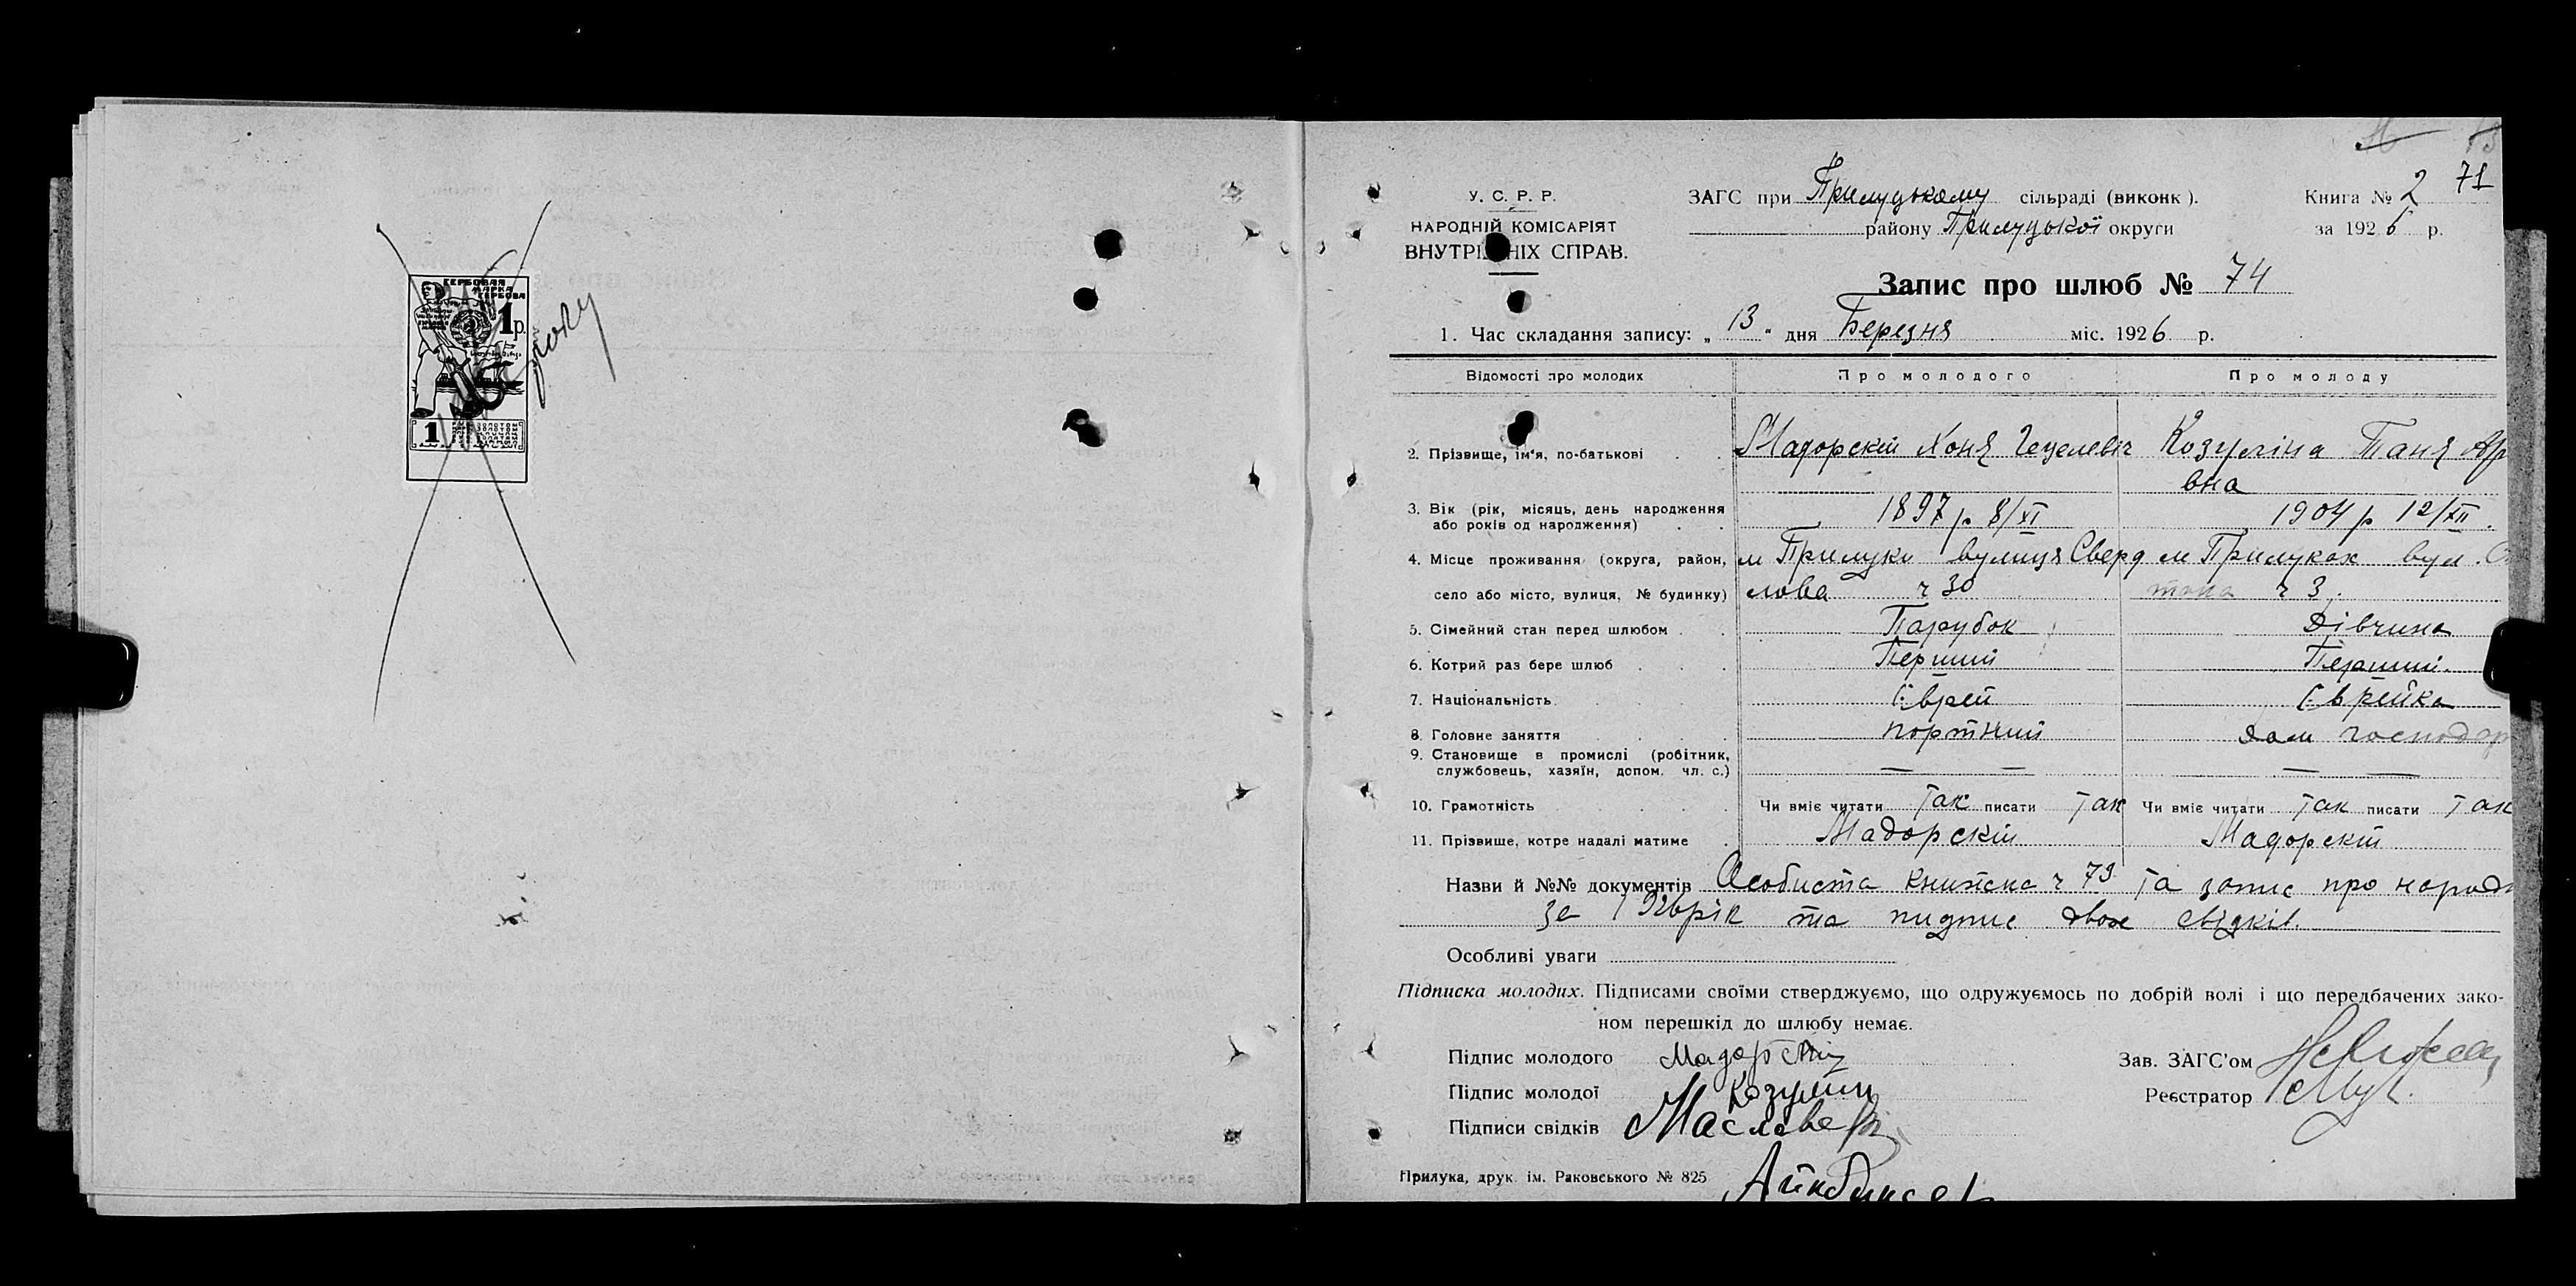 ГЕРБОВАЯ
МАРКА
ГЕРБОВА
1 р.
1
71
У. С. Р. Р.
НАРОДНІЙ КОМІСАРІЯТ
ВНУТРІШНІХ СПРАВ.
ЗАГС при Прилуцькому сільраді (виконк).
району Прилуцької округи
Книга № 2
за 1926 р.
Запис про шлюб № 74
1. Час складання запису: „13" дня Березня міс. 1926 р.
Відомості про молодих Про молодого Про молоду
2. Прізвище, ім'я, по-батькові Мадорскій Хоня Гецелевіч Козуліна Таня
вна
3. Вік (рік, місяць, день народження
або років од народження) 1897 р 8/XI 1904 р 12/XII.
4. Місце проживання (округа, район, м Прилуки вулиця Сверд м Прилуках вул.
село або місто, вулиця, № будинку) лова ч 30 ч 3.
5. Сімейний стан перед шлюбом Парубок Дівчина
6. Котрий раз бере шлюб Перший Перший.
7. Національність Єврей Єврейка
8. Головне заняття портний дом господар
9. Становище в промислі (робітник,
службовець, хазяїн, допом. чл. с.) — — — —
10. Грамотність Чи вміє читати так писати так Чи вміє читати так писати так
11. Прізвище, котре надалі матиме Мадорскій Мадорскій
Назви й №№ документів Особиста книжка ч 79 та запис про народ
за рік та пидпис двох свідків.
Особливі уваги
Підписка молодих. Підписами своїми стверджуємо, що одружуємось по добрій волі і що передбачених зако-
ном перешкід до шлюбу немає.
Підпис молодого Мадорскій
Зав. ЗАГС'ом
Підпис молодої Козулін
Реєстратор
Підписи свідків
Прилука, друк. ім. Раковського № 825